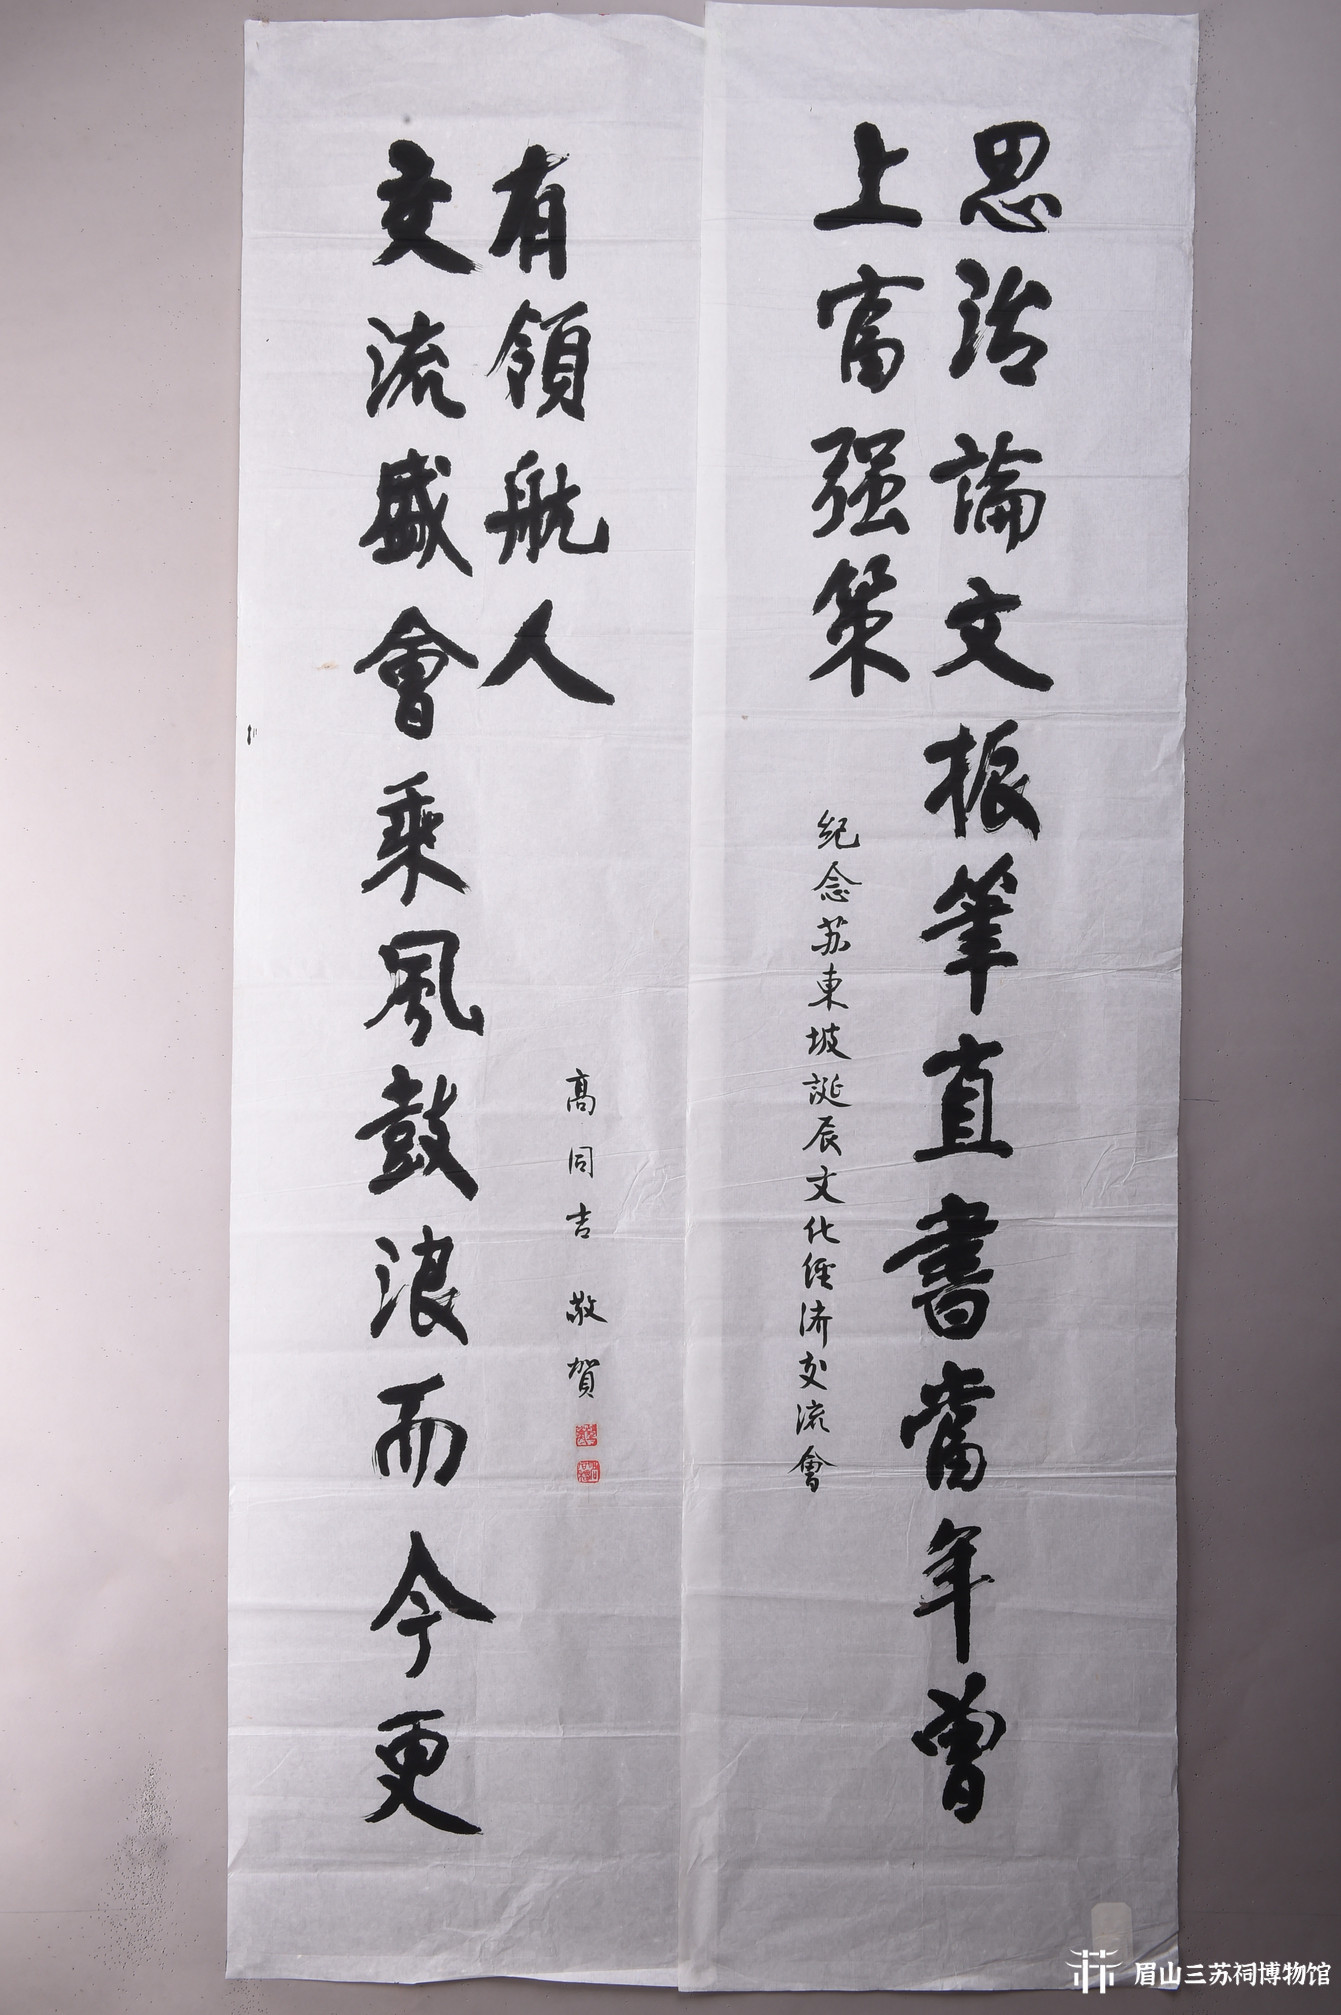 思治論文振筆直書當年曾
上富强策
纪念苏東坡誕辰文化经济交流會
交流盛會乘風鼓浪而今更
有領航人
高同吉敬賀
眉山三苏祠博物馆